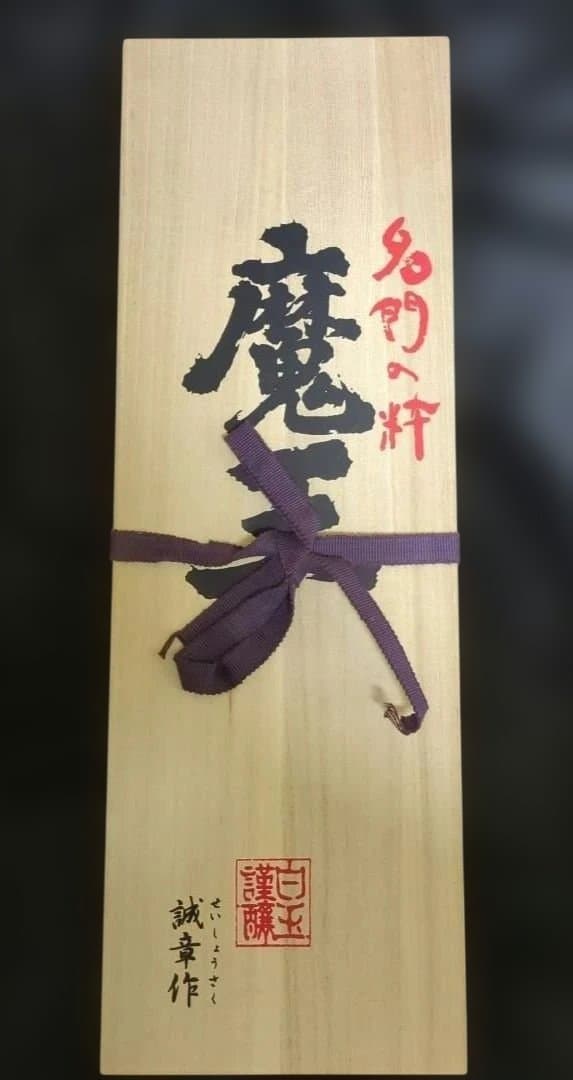 名門の粋
魔王
白玉
謹醸
せいしょうさく
誠章作